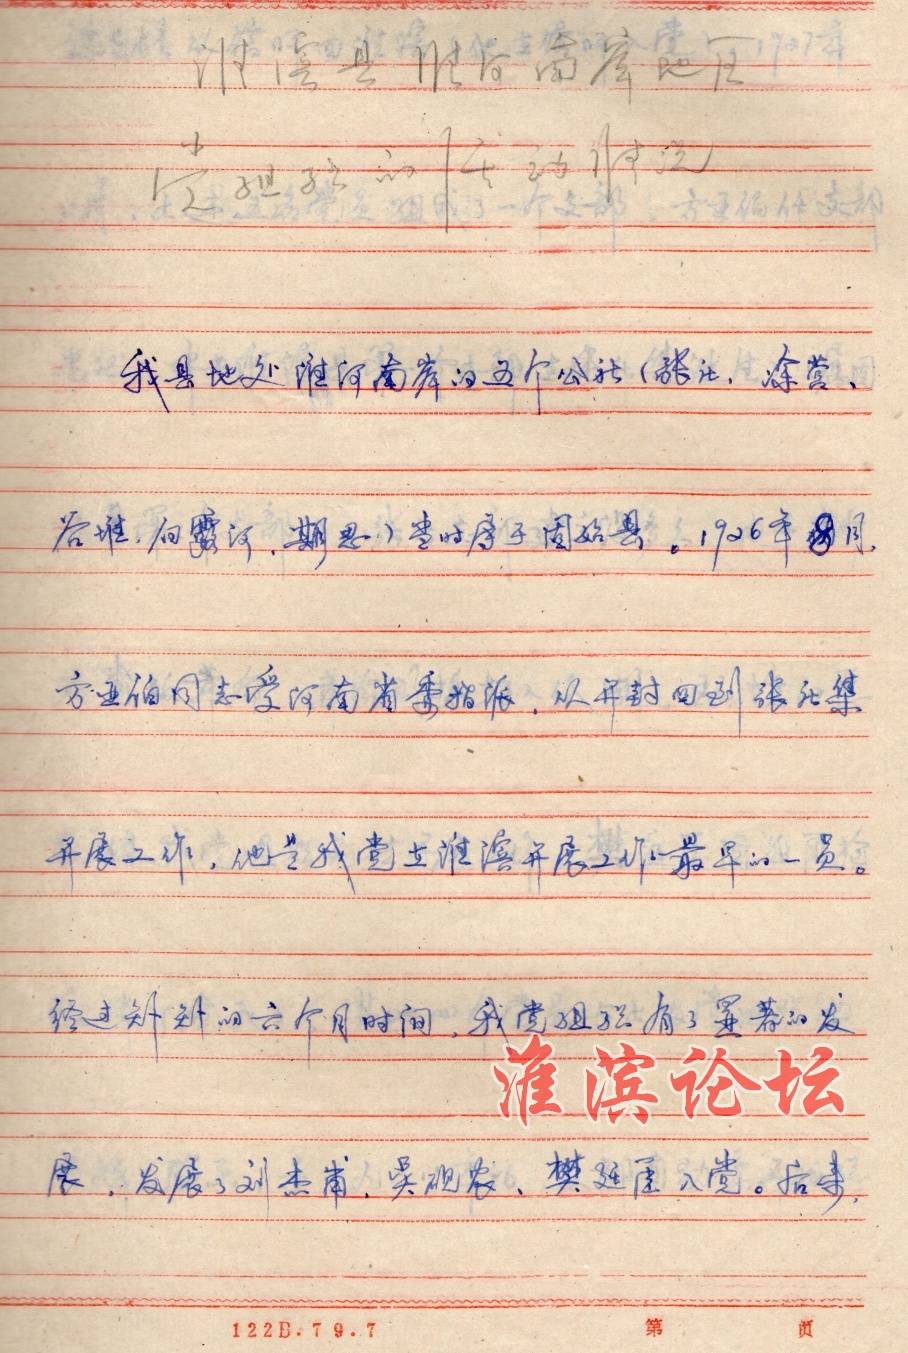 淮滨县淮河南岸地区
党组织的活动情况
我县地处淮河南岸的五个公社（张庄、涂营、
谷堆、白露河、期思）当时属于固始县。1926年8月，
方亚伯同志受河南省委指派，从开封回到张庄集
开展工作，他是我党在淮滨开展工作最早的一员。
经过短短的六个月时间，我党组织有了显著的发
淮滨论坛
展，发展了刘杰甫、吴砚农、樊廷臣入党。后来，
122B.79.7 第 页